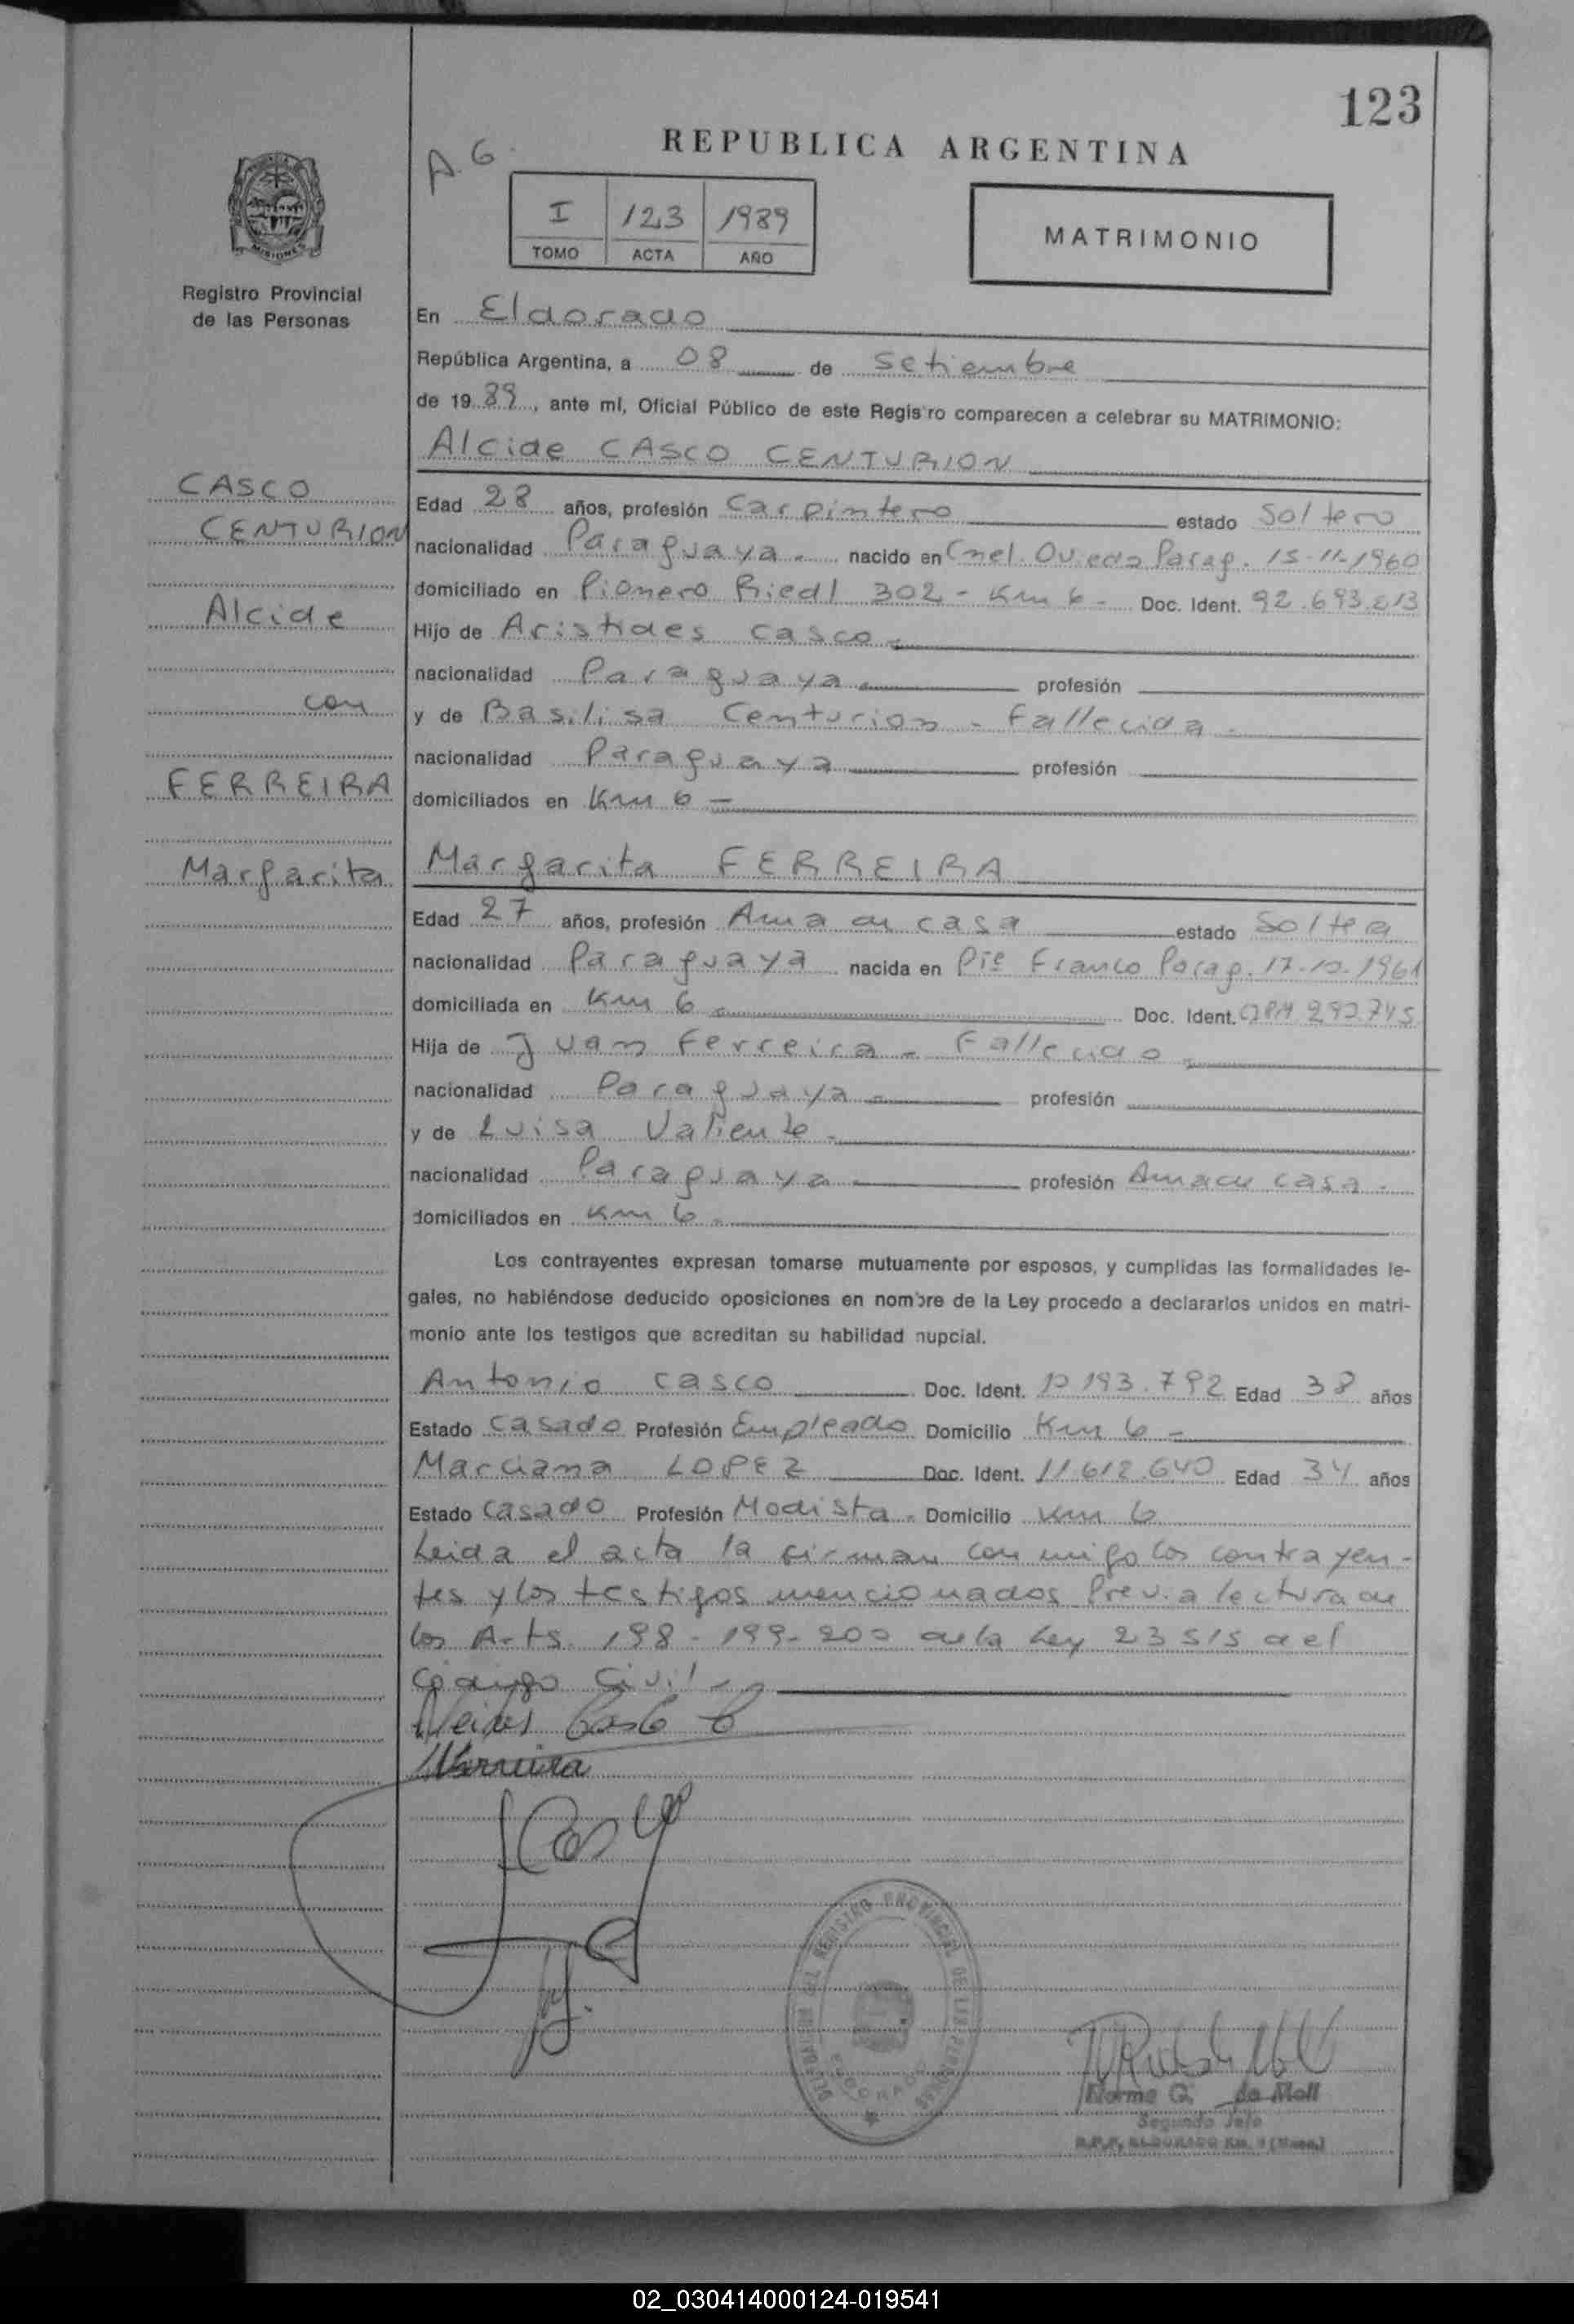 123
REPUBLICA ARGENTINA
A.G.
I 123 1989
TOMO ACTA AÑO
MATRIMONIO
MISIONES
Registro Provincial
de las Personas
En Eldorado
República Argentina, a 08 de Setiembre
de 19 89, ante mí, Oficial Público de este Registro comparecen a celebrar su MATRIMONIO:
Alcide CASCO CENTURION
CASCO
CENTURION
Alcide
con
FERREIRA
Margarita
Edad 28 años, profesión Carpintero estado Soltero
nacionalidad Paraguaya - nacido en Cnel. Oviedo Parag. 15-11-1960
domiciliado en Pionero Riedl 302 - Km 6 - Doc. Ident. 92.693.213
Hijo de Aristides Casco -
nacionalidad Paraguaya profesión
y de Basilisa Centurion - Fallecida -
nacionalidad Paraguaya profesión
domiciliados en Km 6 -
Margarita FERREIRA
Edad 27 años, profesión Ama de casa estado Soltera
nacionalidad Paraguaya nacida en Pte Franco Parag. 17-10-1961
domiciliada en Km 6 - Doc. Ident. 292.745
Hija de Juan Ferreira - Fallecido -
nacionalidad Paraguaya - profesión
y de Luisa Valiente -
nacionalidad Paraguaya profesión Ama de casa -
domiciliados en Km 6 -
Los contrayentes expresan tomarse mutuamente por esposos, y cumplidas las formalidades le-
gales, no habiéndose deducido oposiciones en nombre de la Ley procedo a declararlos unidos en matri-
monio ante los testigos que acreditan su habilidad nupcial.
Antonio Casco Doc. Ident. 10.193.792 Edad 38 años
Estado Casado Profesión Empleado Domicilio Km 6 -
Marciana LOPEZ Doc. Ident. 11.612.640 Edad 34 años
Estado Casado Profesión Modista - Domicilio Km 6
Leida el acta la firman con migo los contrayen-
tes y los testigos mencionados Previa lectura de
los Arts. 198 - 199 - 200 de la Ley 23515 del
Código Civil -
Alcides Casco C
MFerreira
DEL REGISTRO PROVINCIAL DE LAS PERSONAS
ELDORADO
Norma G. de Moll
Segundo Jefe
R.P.P. ELDORADO Km. 9 (Mnes.)
02_030414000124-019541